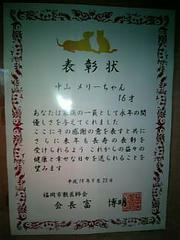 表彰状
中山 メリーちゃん
16才
あなたは家族の一員として永年の間
優しさを与えてくれました
ここにその感謝の意を表すと共に
さらに来年も長寿の表彰を
受けられるよう これからの益々の
健康と幸せな日々を送られることを
望みます
平成18年9月23日
福岡市獣医師会
会長 富 博明